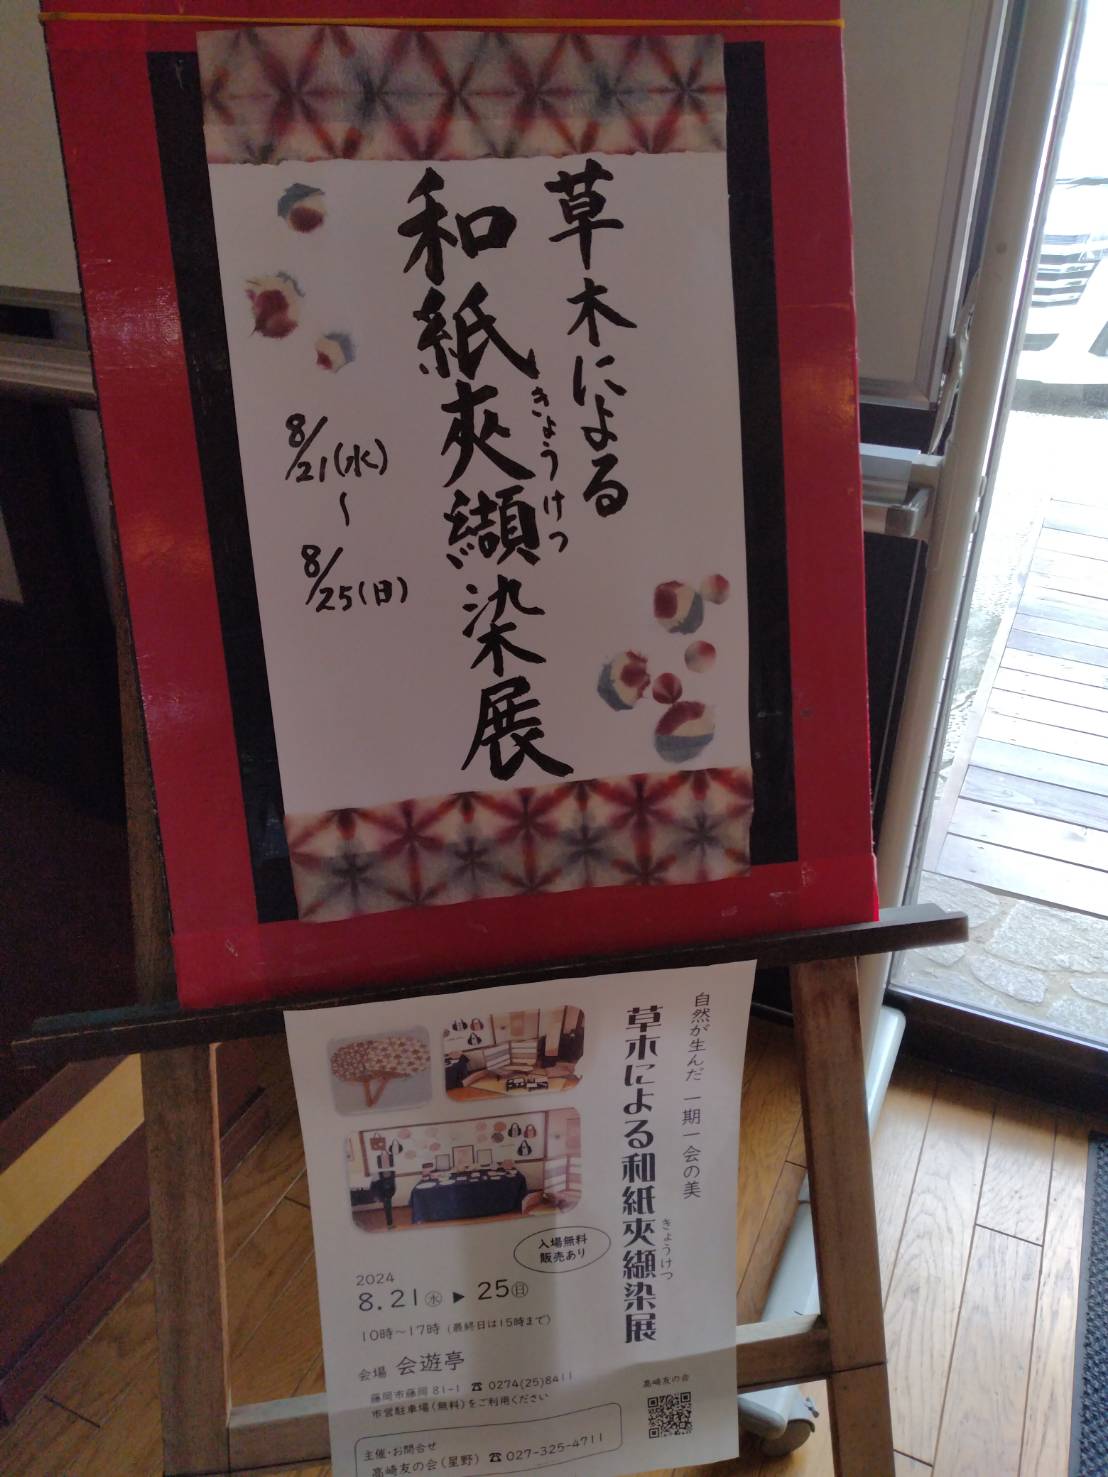 草木による
和紙夾纈染展
きょうけつ
8/21(水)
〜
8/25(日)
自然が生んだ 一期一会の美
草木による和紙夾纈染展
きょうけつ
入場無料
販売あり
2024
8.21㊌▶25㊐
10時〜17時(最終日は15時まで)
会場 会遊亭
藤岡市藤岡81-1 ☎0274(25)8411
市営駐車場(無料)をご利用ください
主催・お問合せ
高崎友の会(星野) ☎027-325-4711
高崎友の会